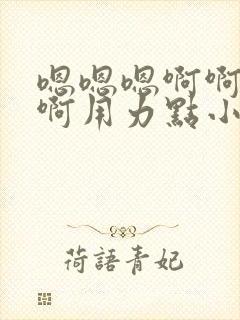 嗯嗯嗯啊啊
啊用力點小
荷語青妃